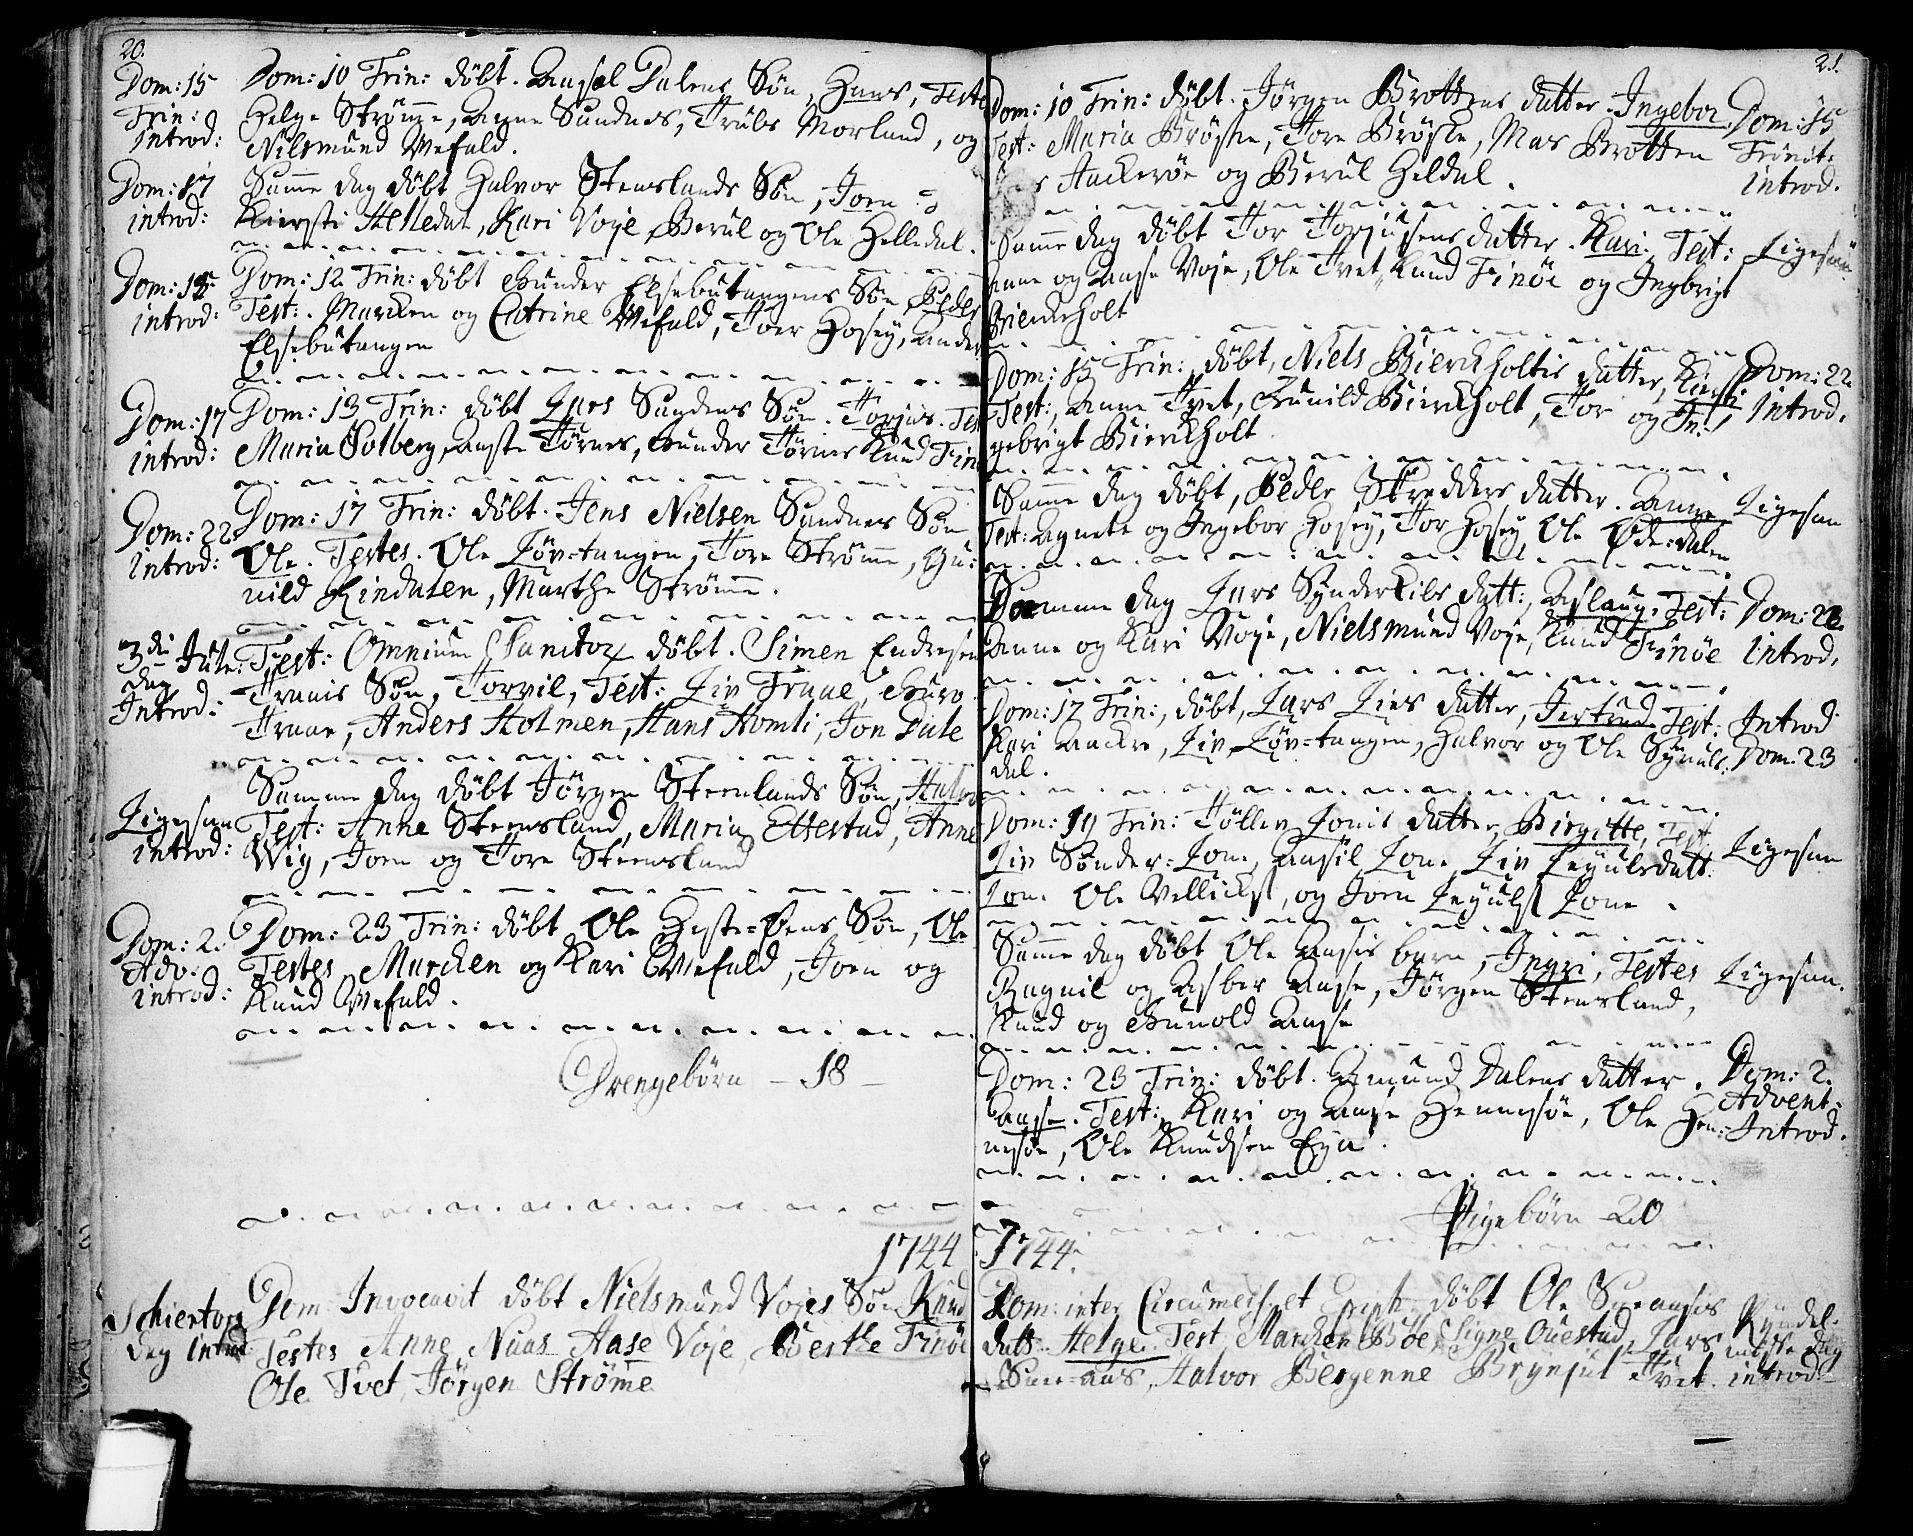 20.
Dom: 15
Trin:
introd:
Dom: 10 Trin: döbt. Aasel Dalens Sön, Hans, Teste
Helge Strömme, Anne Sundnes, Trüls Morland, og
Nilsmund Wefald.
Dom: 17
introd:
Samme dag döbt Halvor Stenslands Sön, Joen
Kiersti Helledal, Kari Voje, Berul og Ole Helledal.
Dom: 15
introd:
Dom: 12 Trin: döbt Gunder Elsebutangens Sön Peder
Test: Marcken og Catrine Wefald, Toer Hosey, Ander
Elsebütangen
Dom: 17
introd:
Dom: 13 Trin: döbt Lars Sundnes Sön. Torjus. Test
Maria Solberg, Aaste Törnes, Gunder Törnes Knud Finö
Dom: 22
introd:
Dom: 17 Trin: döbt. Jens Nielsen Sundnes Sön
Ole. Testes. Ole Löv=tangen, Tore Strömme, Gu:
nild Lindalen, Marthe Strömme.
3die Jule:
dag
Introd:
Fest: Omnium Sanctor döbt. Simen Endresen
Traais Sön, Torvil, Test: Liv Traae, Guro
Traae, Anders Holmen, Hans Homli, Jon Dale
Ligesaa
introd:
Samme dag döbt Jörgen Steenslands Sön, Halvo
Test: Anne Steensland, Maria Ettestad, Anne
Wig, Joen og Tore Steensland
Dom: 2.
Adv:
introd:
Dom: 23 Trin: döbt Ole Heste=Öens Sön, Ole
Testes Marcken og Kari Wefald, Joen og
Knud Wefald.
Drengebörn - 18 -
1744
Schiertors
dag introd
Dom Invocavit döbt Nielsmund Vojes Sön Knud
Testes Anne Naas Aase Voje Berthe Finöe
Ole Tvet, Jörgen Strömme
21.
Dom: 10 Trin: döbt. Jörgen Brottens datter. Ingebor
Test: Maria Bröske, Tore Bröske, Mas Brotten
Aackeröe og Berul Heldal.
Dom: 15
Trinit:
introd.
Samme dag döbt Tor Torjusens datter. Kari. Test:
Anne og Aase Voje, Ole Tvet, Knud Finöe og Ingbrigt
Bierckholt
Ligesaa
Dom: 15 Trin: döbt, Niels Bierckholtis datter, Kiersti
Test: Anne Tvet, Gunild Bierckholt, Tor og In:
gebrigt Bierckholt
Dom: 22
Introd.
Samme dag döbt, Peder Skredders datter. Anne
Test: Agnete og Ingebor Hosey, Tor Hosey Ole Öde:dalen
Ligesaa
Samme dag Lars Synderkils datt: Aslaug. Test:
Anne og Kari Voje, Nielsmund Voje, Knud Finöe
Dom: 22
introd.
Dom: 17 Trin: döbt, Lars Lies datter, Jertrud Test:
Kari Aackre, Liv Löv=tangen, Halvor og Ole Synuls:
dal.
Introd
Dom: 23
Dom: 19 Trin: Töllev Lonis datter Birgitte, Test
Liv Sönder=Lone, Aasil Lone Liv Leyulsdatt:
Lone Ole Vellicks, og Joen Leyuls Lone.
Ligesaa
Samme dag döbt Ole Aasis barn, Ingri, Testes
Ragnil og Asber Aase, Jörgen Stensland,
Knud og Gunvold Aase
Ligesaa.
Dom: 23 Trin: döbt. Amund Dalens datter.
Aasse. Test: Kari og Aase Hennesöe, Ole Hen:
nesöe, Ole Knudsen Eya.
Dom: 2.
Advent:
Introd.
Pigebörn 20
1744.
Dom: inter Circumcis et Epiph. döbt Ole
datt. Helge. Test Marchen Böe, Signe Ouestad, Lars
Halvor Bergenne Brynjul Tvet.
Kyndel:
misse dag
introd